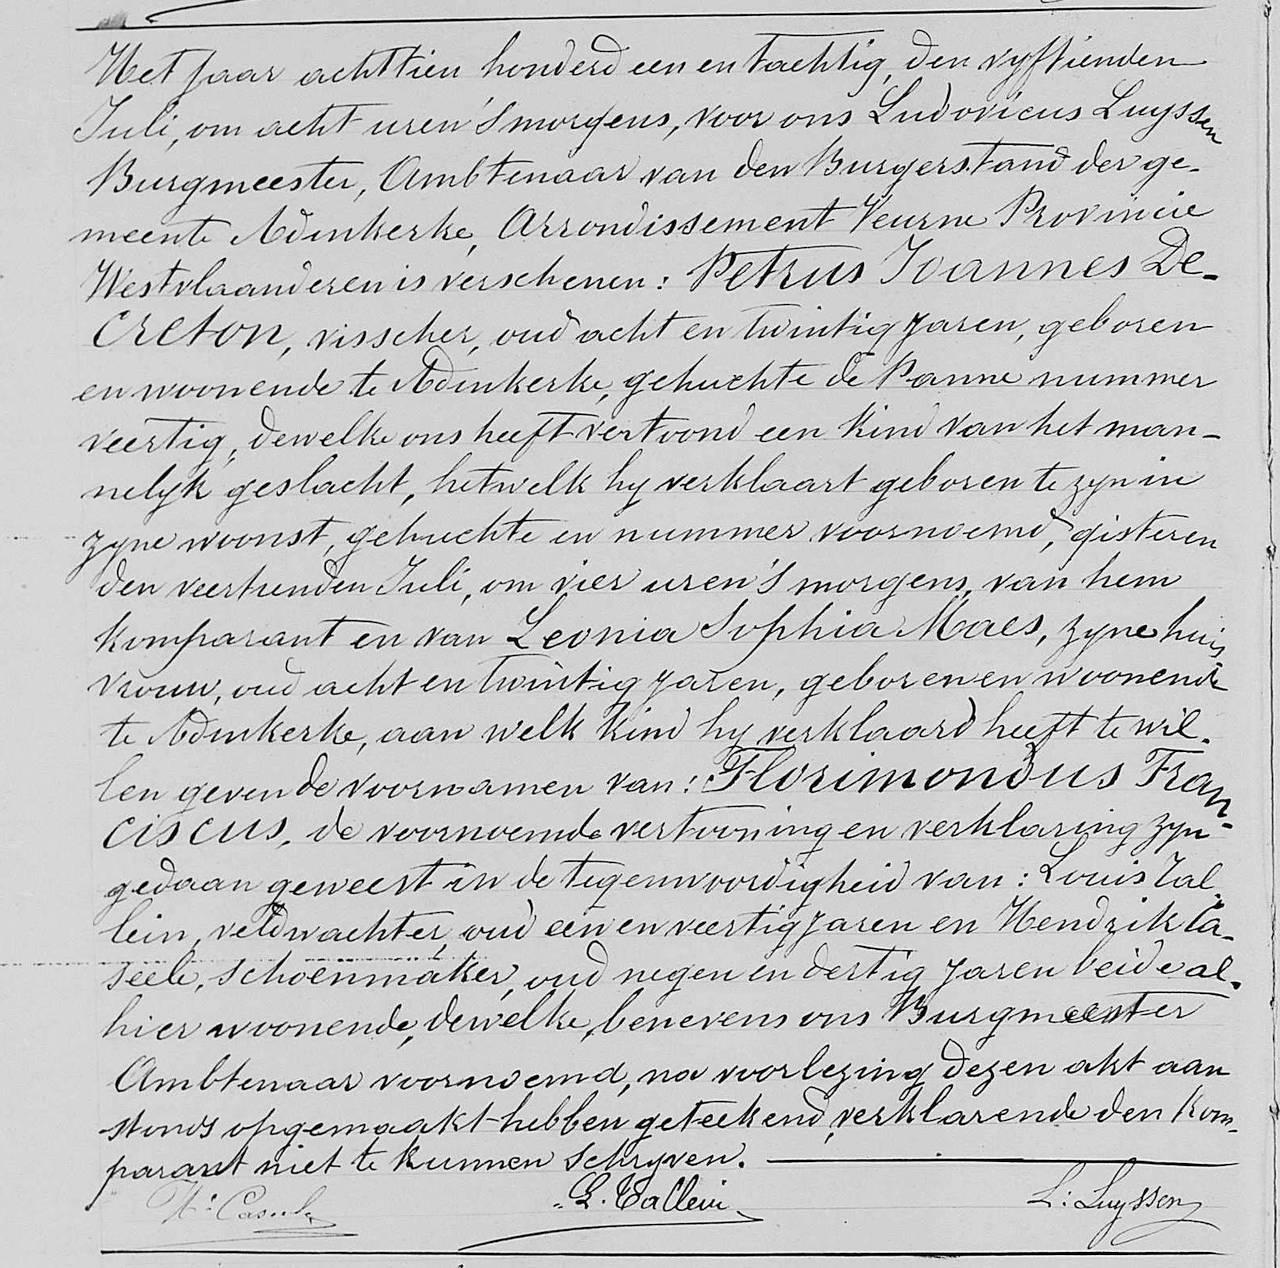 Het jaar achttien honderd een en tachtig, den vyftienden
Juli, om acht uren 's morgens, voor ons Ludovicus Luyssen
Burgmeester, Ambtenaar van den Burgerstand der ge-
meente Adinkerke, Arrondissement Veurne Provincie
Westvlaanderen is verschenen: Petrus Joannes De-
creton, visscher, oud acht en twintig jaren, geboren
en woonende te Adinkerke, gehuchte de Panne nummer
veertig, dewelke ons heeft vertoond een kind van het man-
nelyk geslacht, hetwelk hy verklaart geboren te zyn in
zyne woonst, gehuchte en nummer voornoemd, gisteren
den veertienden Juli, om vier uren 's morgens, van hem
komparant en van Leonia Sophia Maes, zyne huis
vrouw, oud acht en twintig jaren, geboren en woonende
te Adinkerke, aan welk kind hy verklaard heeft te wil-
len geven de voornamen van: Florimondus Fran-
ciscus, de voornoemde vertooning en verklaring zyn
gedaan geweest in de tegenwoordigheid van: Louis Tal-
lein, veldwachter, oud een en veertig jaren en Hendrik Ca-
seele, schoenmaker, oud negen en dertig jaren beide al-
hier woonende, dewelke, benevens ons Burgmeester
Ambtenaar voornoemd, na voorlezing dezen akt aan
stonds opgemaakt hebben geteekend, verklarende den kom-
parant niet te kunnen schryven.
H: Caseele L. Tallein L: Luyssen